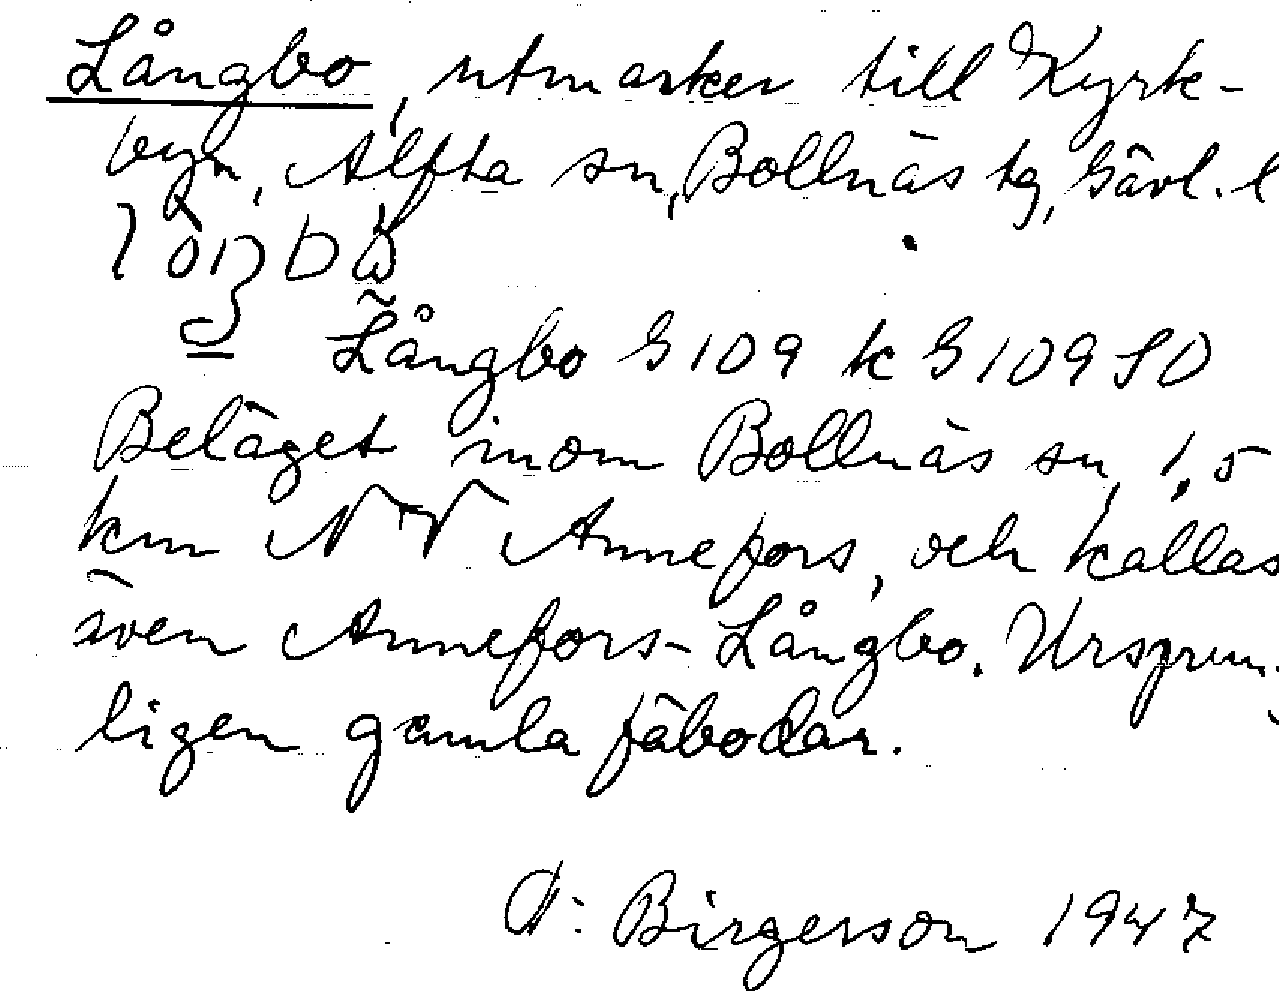 Långbo, utmarker till Kyrk-
byn, Alfta sn, Bollnäs tg, Gävl. l
Långbo G 109 k G 109 SO
Beläget inom Bollnäs sn, 1,5
km NV Annefors, och kallas
även Annefors-Långbo. Ursprun.
ligen gamla fäbodar.
Birgerson 1947